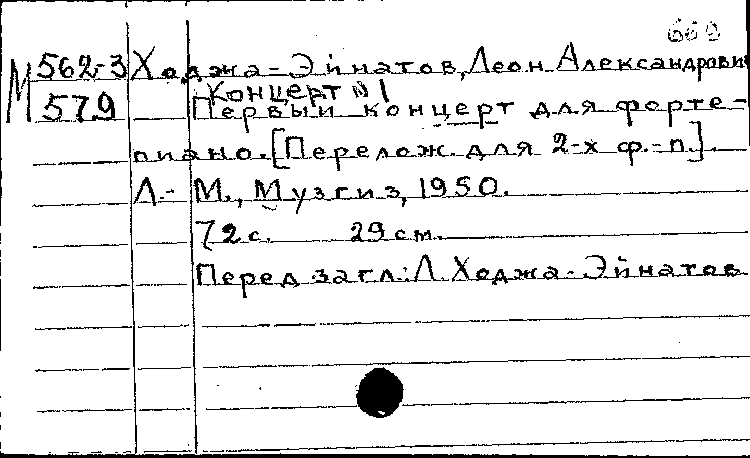 669
М 562-3 Ходжа-Эйнатов, Леон Александрович
Концерт №1
579 Первый концерт для форте-
пиано. [Перелож. для 2-х ф.-п.].
Л.-М., Музгиз, 1950.
72 с. 29 см.
Перед загл.: Л. Ходжа-Эйнатов